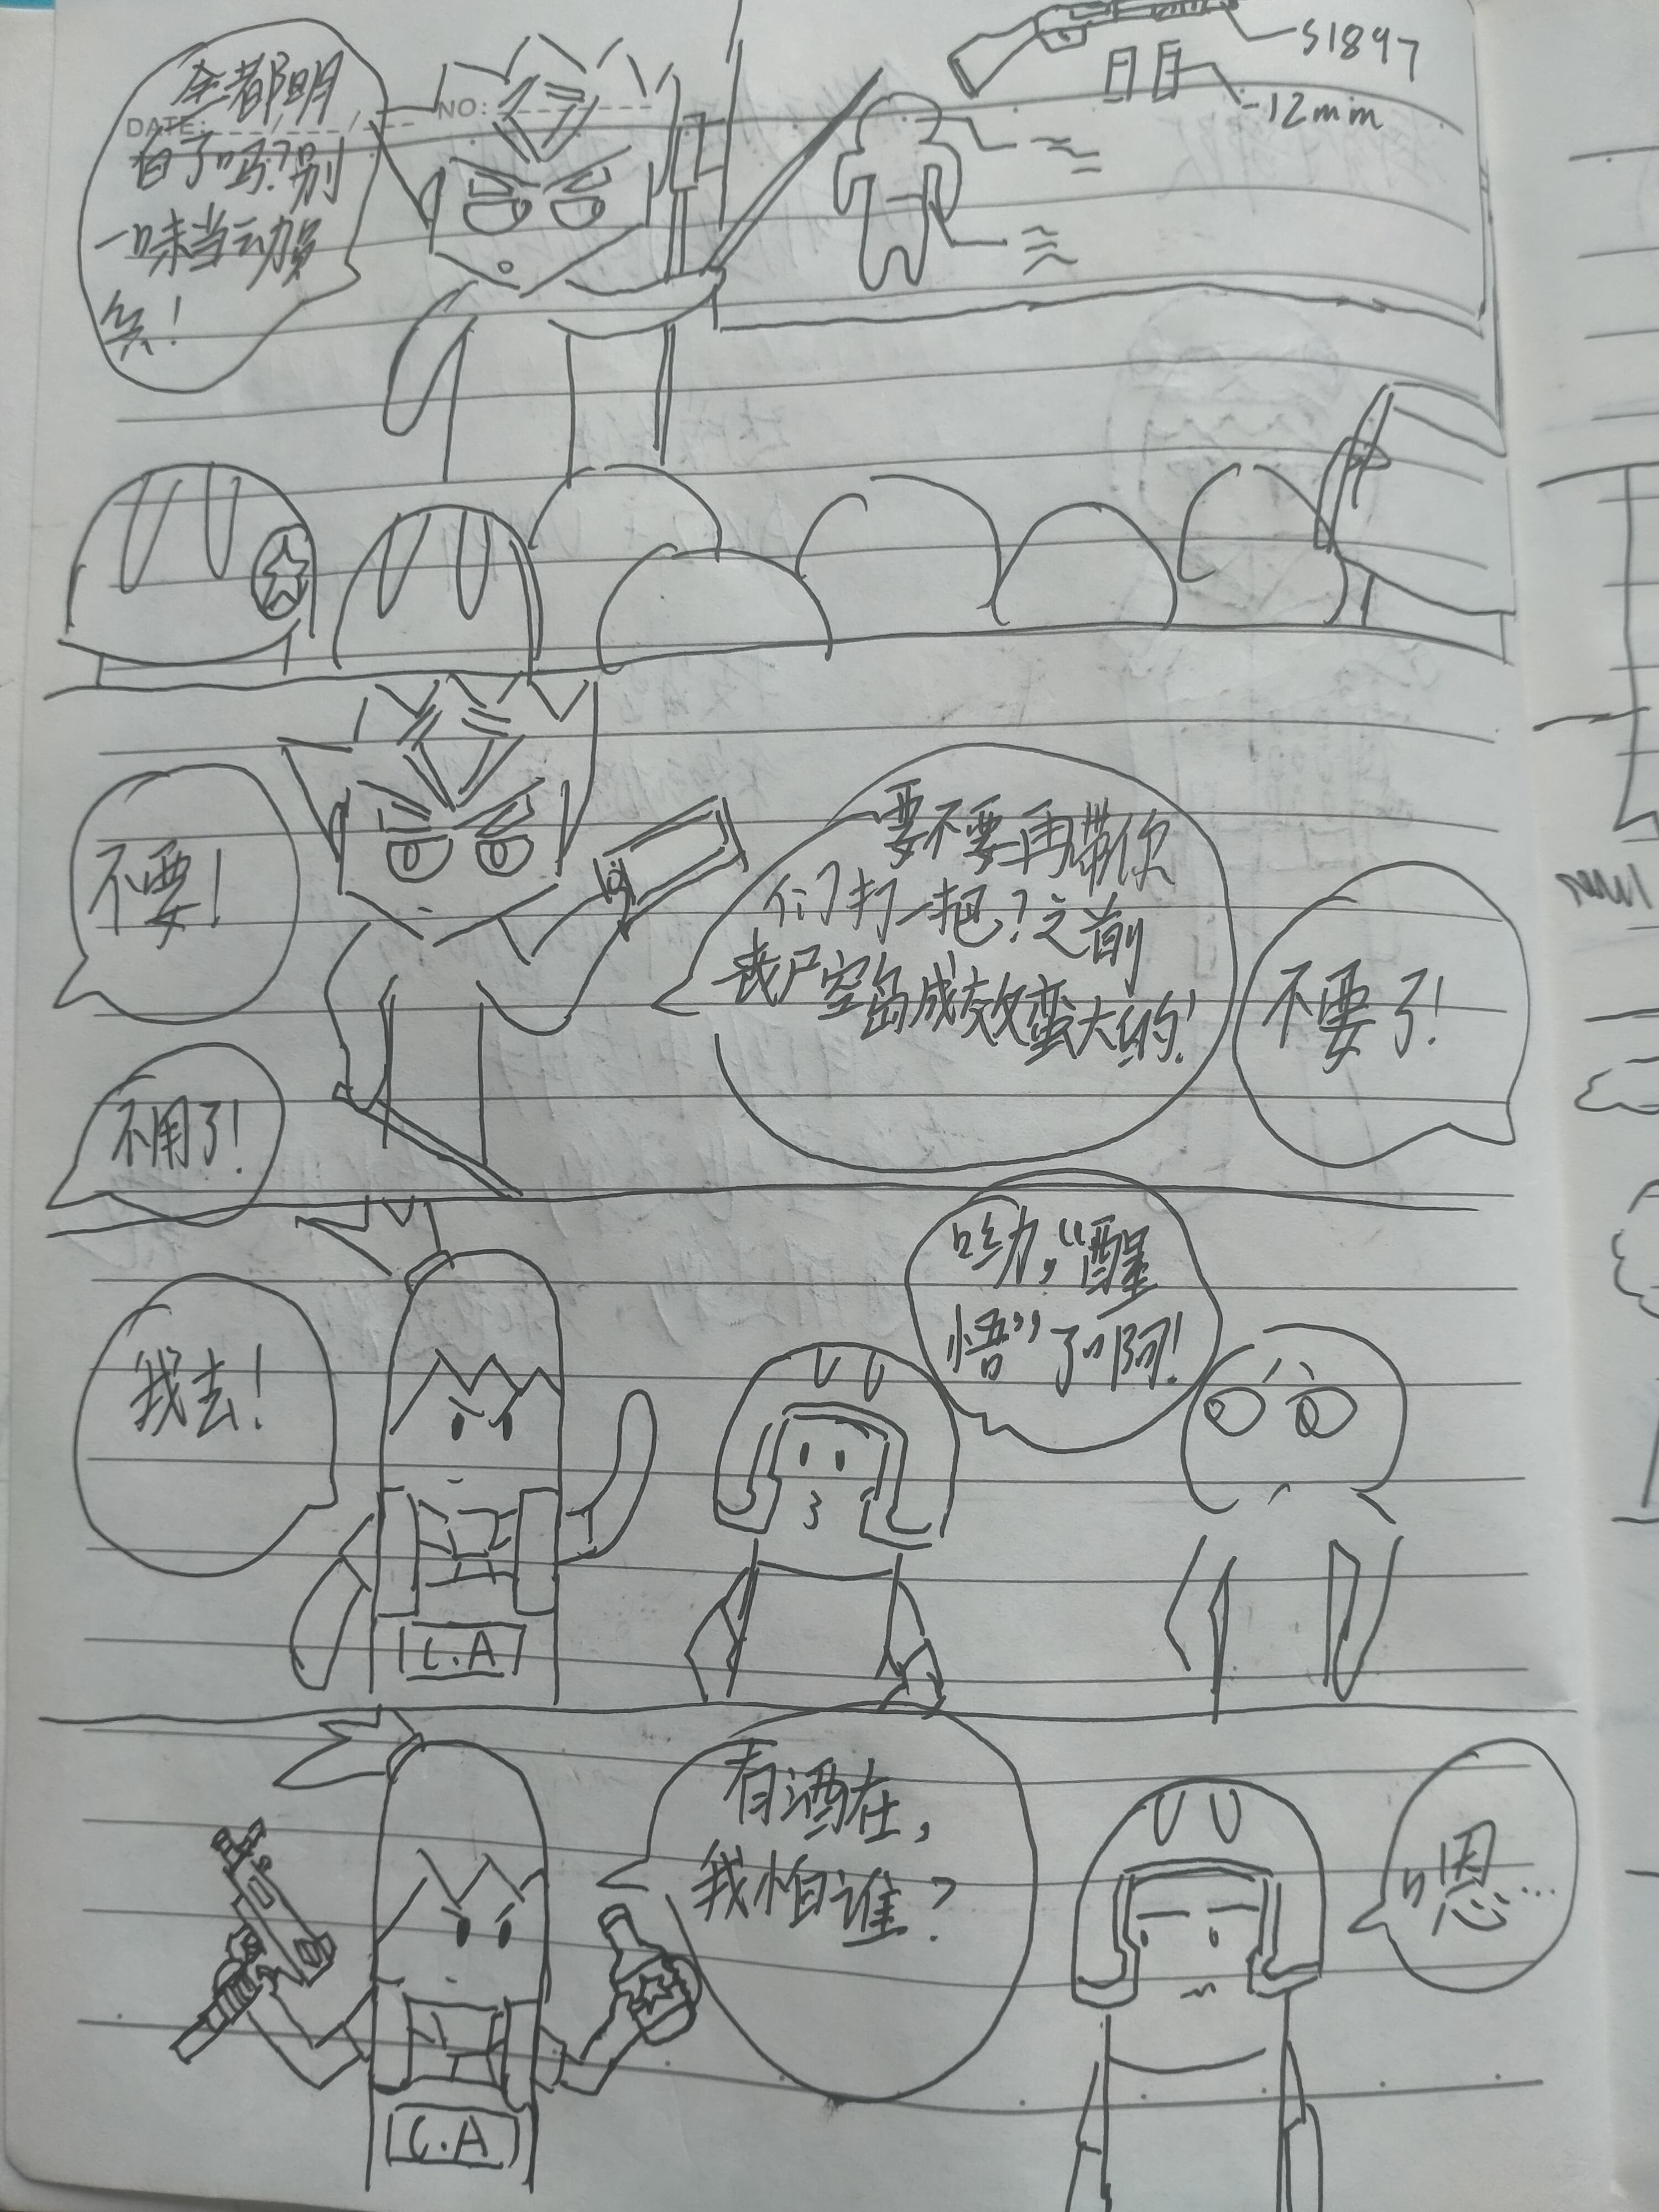 S1897
12mm
DATE:
NO:
全都明
白了吗?别
一味当动員
兵!
不要!
要不要再带你
们打一把?之前
丧尸空岛成效蛮大的!
不要了!
不用了!
我去!
呦,“醒
悟”了啊!
C.A
有酒在,
我怕谁?
嗯…
C.A